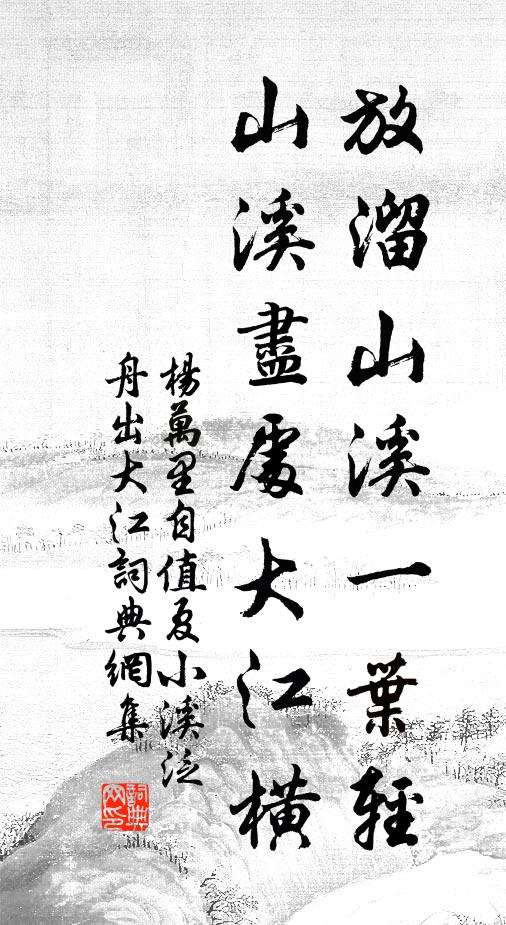 放溜山溪一葉輕
山溪盡處大江橫
楊萬里自值夏小溪泛
舟出大江詞典網集
詞典網印